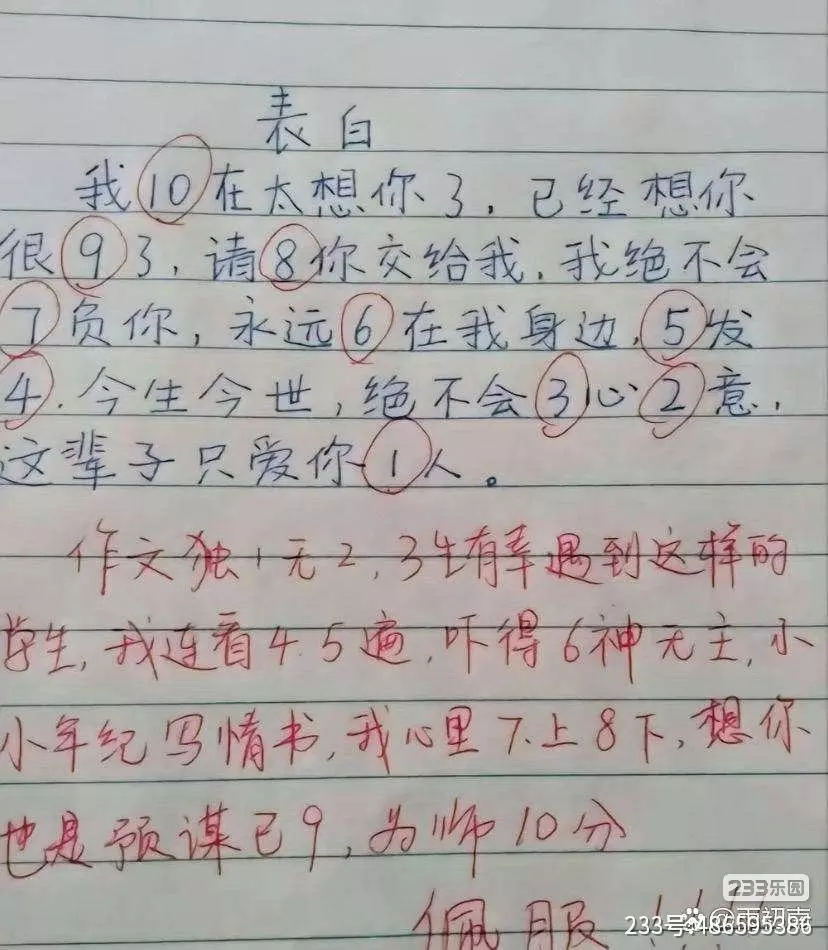 表白
我10在太想你了，已经想你
很9了，请8你交给我，我绝不会
7负你，永远6在我身边，5发
4．今生今世，绝不会3心2意，
这辈子只爱你1人。
作文独1无2，3生有幸遇到这样的
学生，我连看4.5遍，吓得6神无主，小
小年纪写情书，我心里7上8下，想你
也是预谋已9，为师10分
佩服
233乐园
233号:486595386